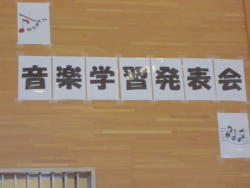 音楽学習発表会